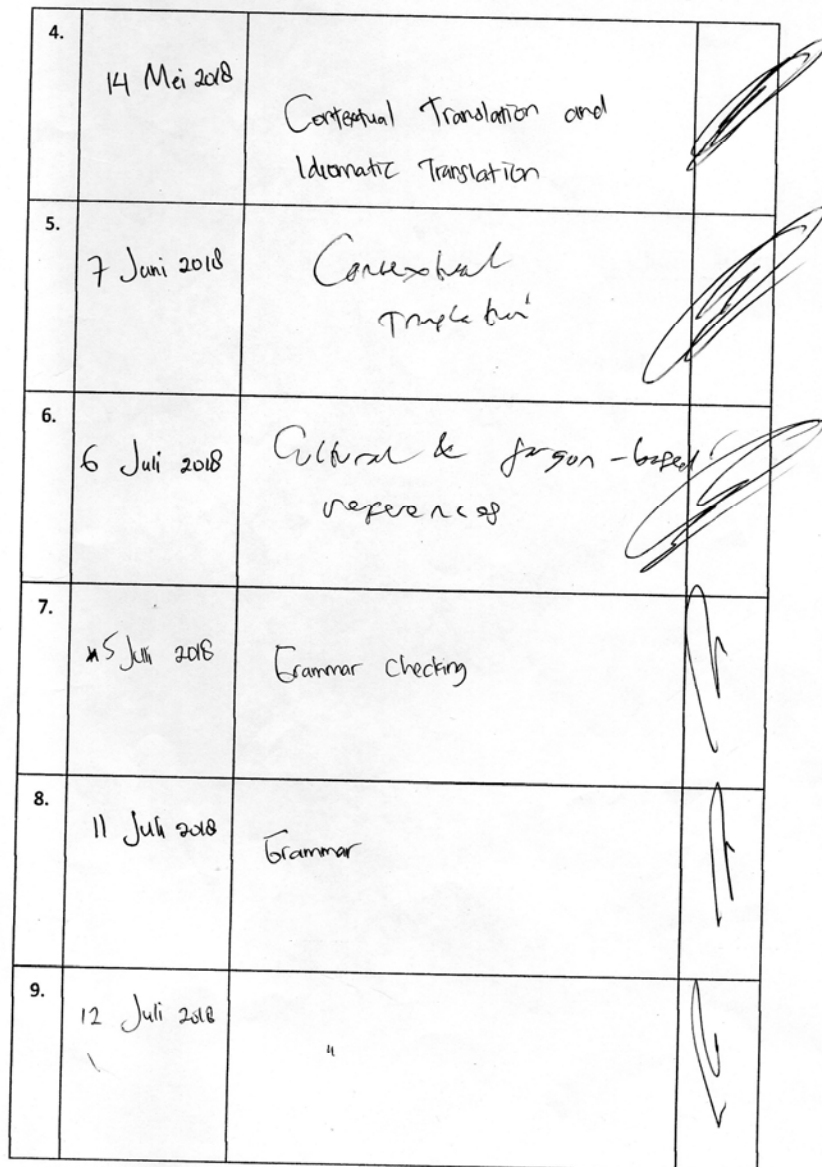 4.
14 Mei 2018
Contextual Translation and
Idiomatic Translation
5.
7 Juni 2018
Contextual
Translation
6.
6 Juli 2018
Cultural & jargon-based
references
7.
5 Juli 2018
Grammar checking
8.
11 Juli 2018
Grammar
9.
12 Juli 2018
"